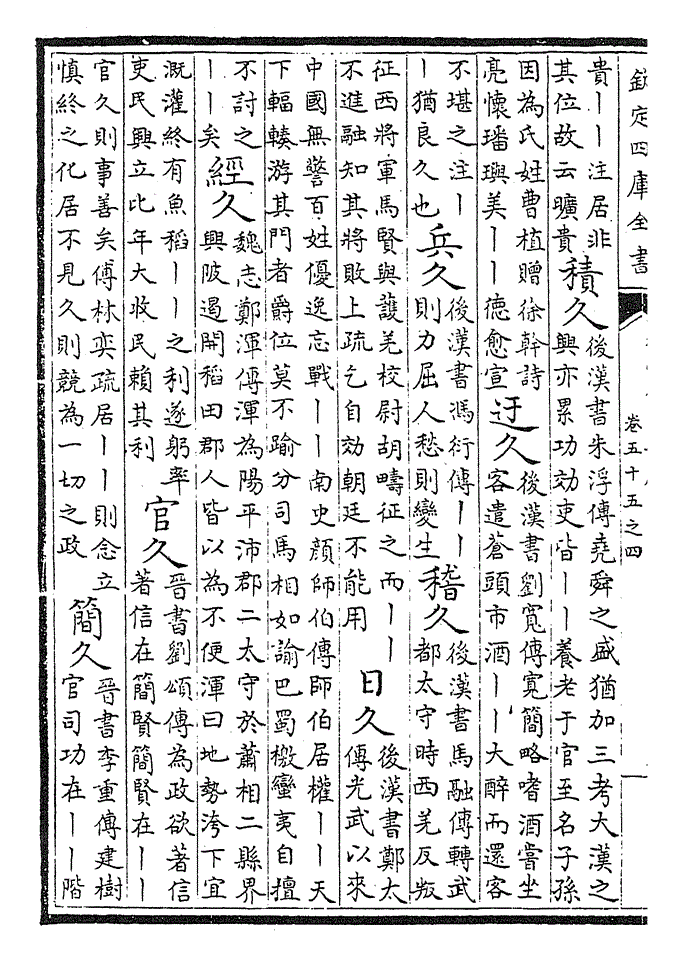 欽定四庫全書
卷五十五之四
貴丨丨注居非
其位故云曠貴
積久
後漢書朱浮傳堯舜之盛猶加三考大漢之
興亦累功效吏皆丨丨養老于官至名子孫
因為氏姓曹植贈徐幹詩
亮懷璠璵美丨丨德愈宣
迂久
後漢書劉寛傳寛簡略嗜酒嘗坐
客遣蒼頭市酒丨丨大醉而還客
不堪之注丨
丨猶良久也
兵久
後漢書馮衍傳丨丨
則力屈人愁則變生
稽久
後漢書馬融傳轉武
都太守時西羌反叛
征西將軍馬賢與護羌校尉胡疇征之而丨丨
不進融知其將敗上疏乞自効朝廷不能用
日久
後漢書鄭太
傳光武以來
中國無警百姓優逸忘戰丨丨南史顔師伯傳師伯居權丨丨天
下輻輳游其門者爵位莫不踰分司馬相如諭巴蜀檄蠻夷自擅
不討之
丨丨矣
經久
魏志鄭渾傳渾為陽平沛郡二太守於蕭相二縣界
興陂遏開稻田郡人皆以為不便渾曰地勢洿下宜
溉灌終有魚稻丨丨之利遂躬率
吏民興立比年大收民賴其利
官久
晉書劉頌傳為政欲著信
著信在簡賢簡賢在丨丨
官久則事善矣傅林奕疏居丨丨則念立
慎終之化居不見久則競為一切之政
簡久
晉書李重傳建樹
官司功在丨丨階